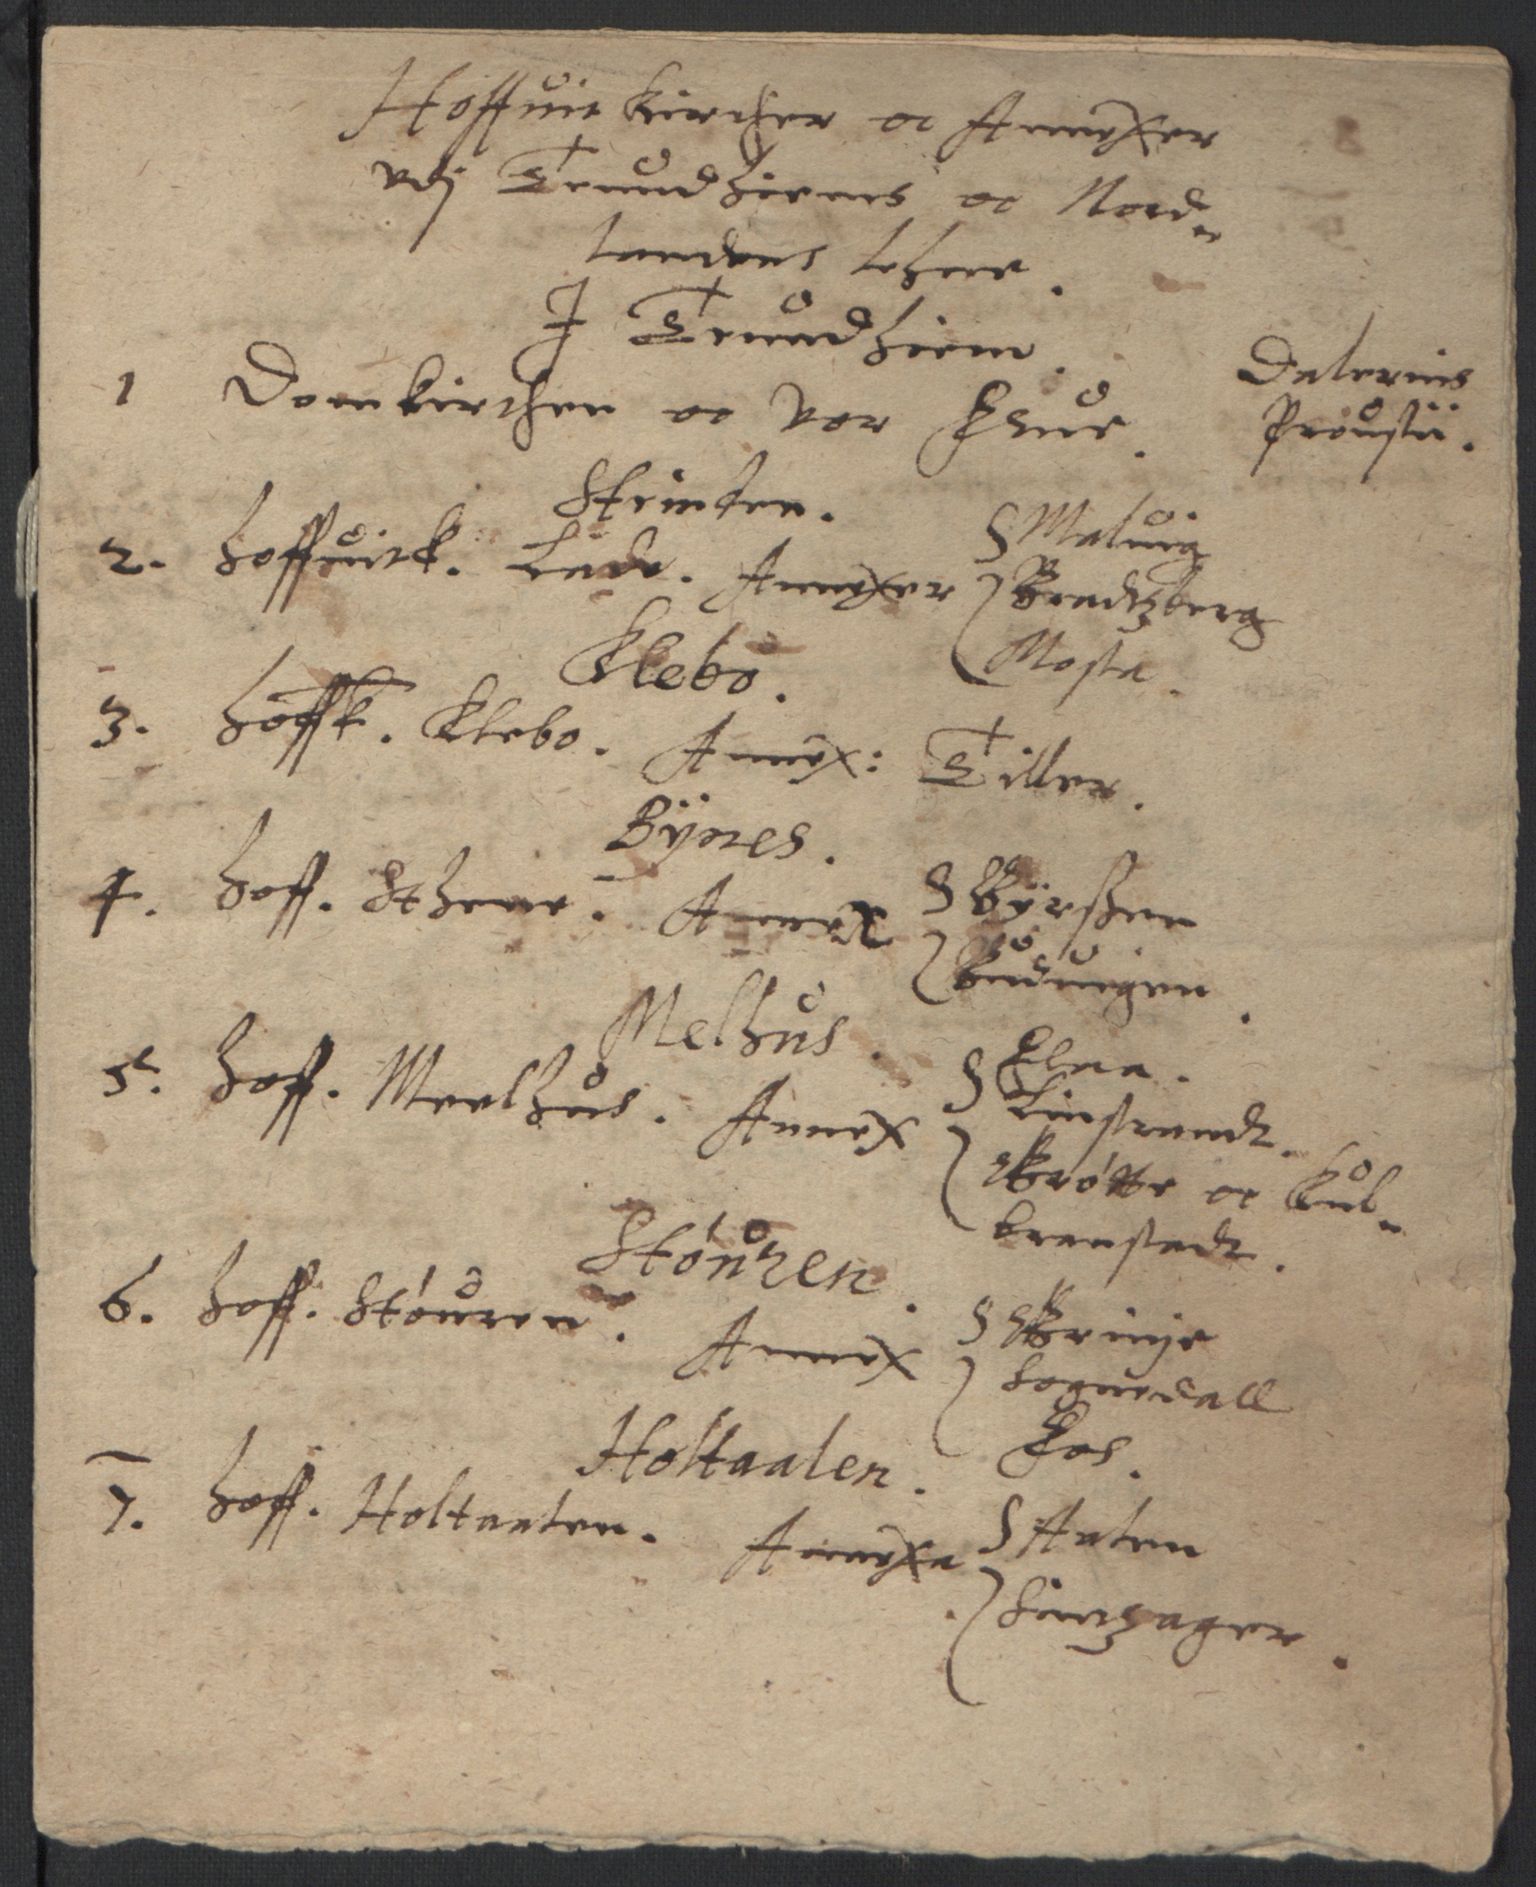 Hoffuit kircher oc Annexer
vdj Trundhiems oc Nord=
landens lehne.
I Trundhiem.
1 Domkirchen oc Vor Frue.
Dalernis
Proustij.
Strinden.
2. Hoffuitk. Lade. Annexer
Maluig
Bradtzberg
Mosta.
Klebo.
3. Hoffk. Klebo. Annex: Tiller.
Býnes.
4. Hoff. Sthene. Annex
Býrssen
Buduigen.
Melhus.
5. Hoff. Meelhus. Annex
Flaa.
Linstrandt.
Krøtte oc Kul=
branstadt.
Støuren.
6. Hoff. Støuren. Annex
Brinje
Sognedall
Foss.
Holtaalen.
7. Hoff. Holtaalen. Annexe
Aalen
Singsager.